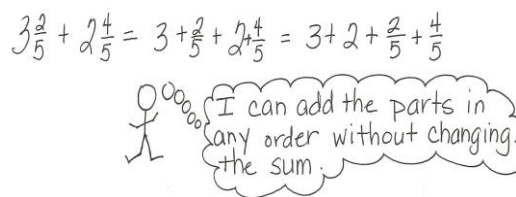 3 2/5 + 2 4/5 = 3 + 2/5 + 2 + 4/5 = 3 + 2 + 2/5 + 4/5
I can add the parts in
any order without changing.
the sum.